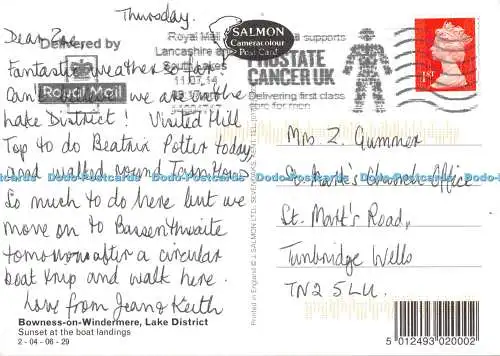 Thursday.
Dear Zoe
Delivered by
Royal Mail
Fantastic weather so far
Can't believe we are in the
Lake District! Visited Hill
Top to do Beatrix Potter today,
and walked round Tarn Hows
So much to do here but we
move on to Bassenthwaite
tomorrow after a circular
boat trip and walk here.
Love from Jean & Keith
Bowness-on-Windermere, Lake District
Sunset at the boat landings
2 - 04 - 06 - 29
SALMON
Cameracolour
Post Card
Royal Mail
Lancashire and
South Lakes
11.07.14
supports
PROSTATE
CANCER UK
Delivering first class
care for men
1ST
Printed in England © J. SALMON LTD., SEVENOAKS, KENT
Mrs Z. Gummer
St. Mark's Church Office
St. Mark's Road,
Tunbridge Wells
TN2 5LU.
5 012493 020002
Dodo-Postcards Dodo-Postcards Dodo-Postcards Dodo-Postcards